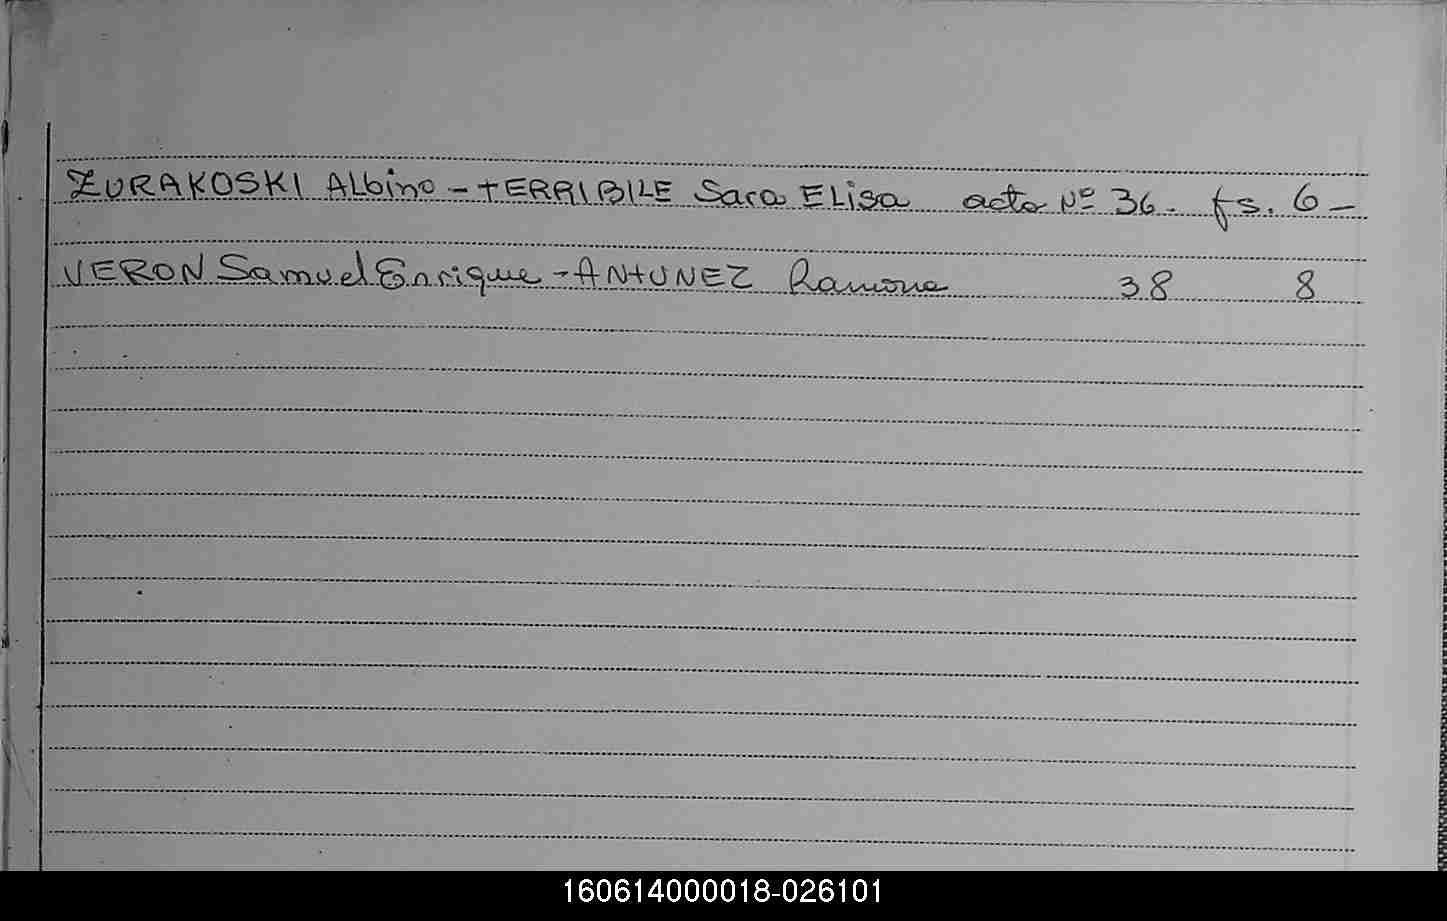 ZURAKOSKI Albino - TERRIBILE Sara Elisa acta Nº 36. fs. 6 -
VERON Samuel Enrique - ANTUNEZ Ramona 38 8
160614000018-026101